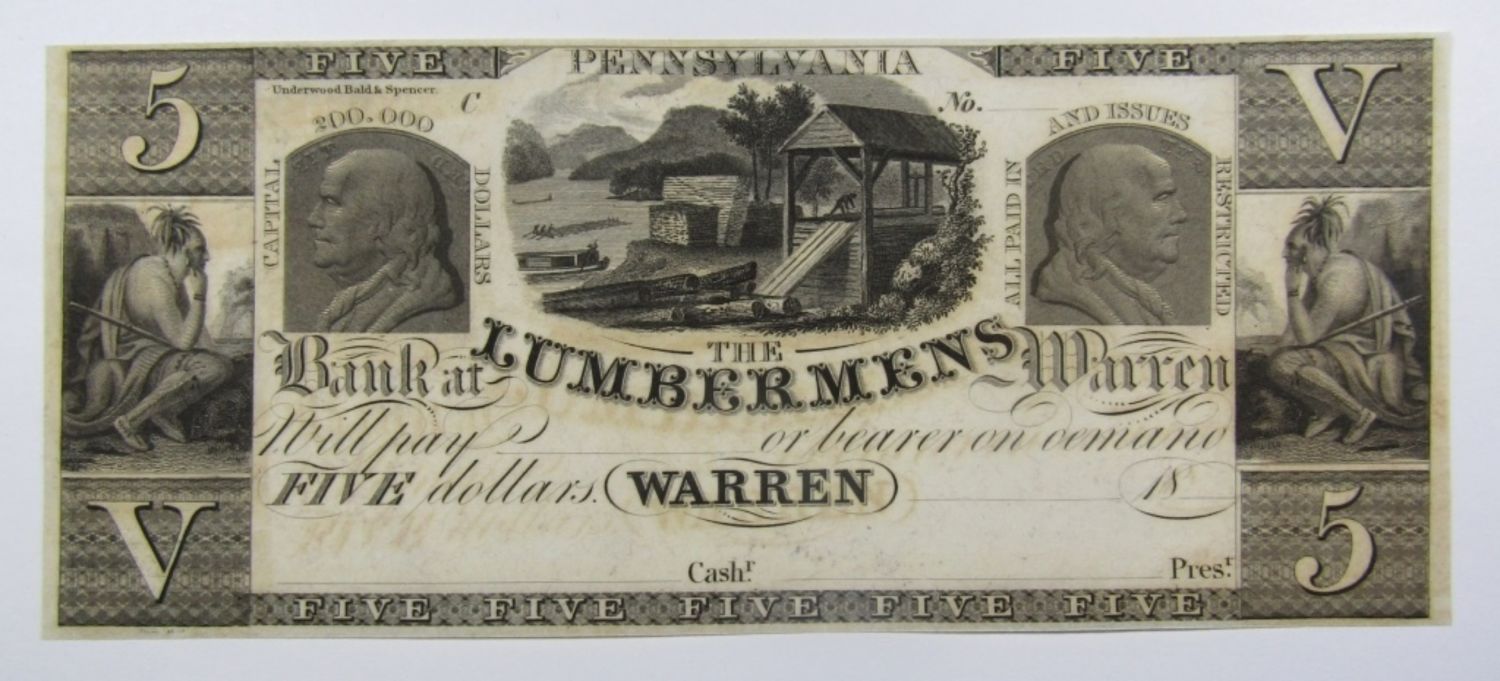 5
FIVE
PENNSYLVANIA
FIVE
V
Underwood Bald & Spencer.
C
No.
CAPITAL
200.000
DOLLARS
ALL PAID IN
AND ISSUES
RESTRICTED
THE
Bank at LUMBERMENS Warren
Will pay or bearer on demand
FIVE dollars. WARREN 18
Cash.r Pres.t
V
FIVE FIVE FIVE FIVE FIVE
5